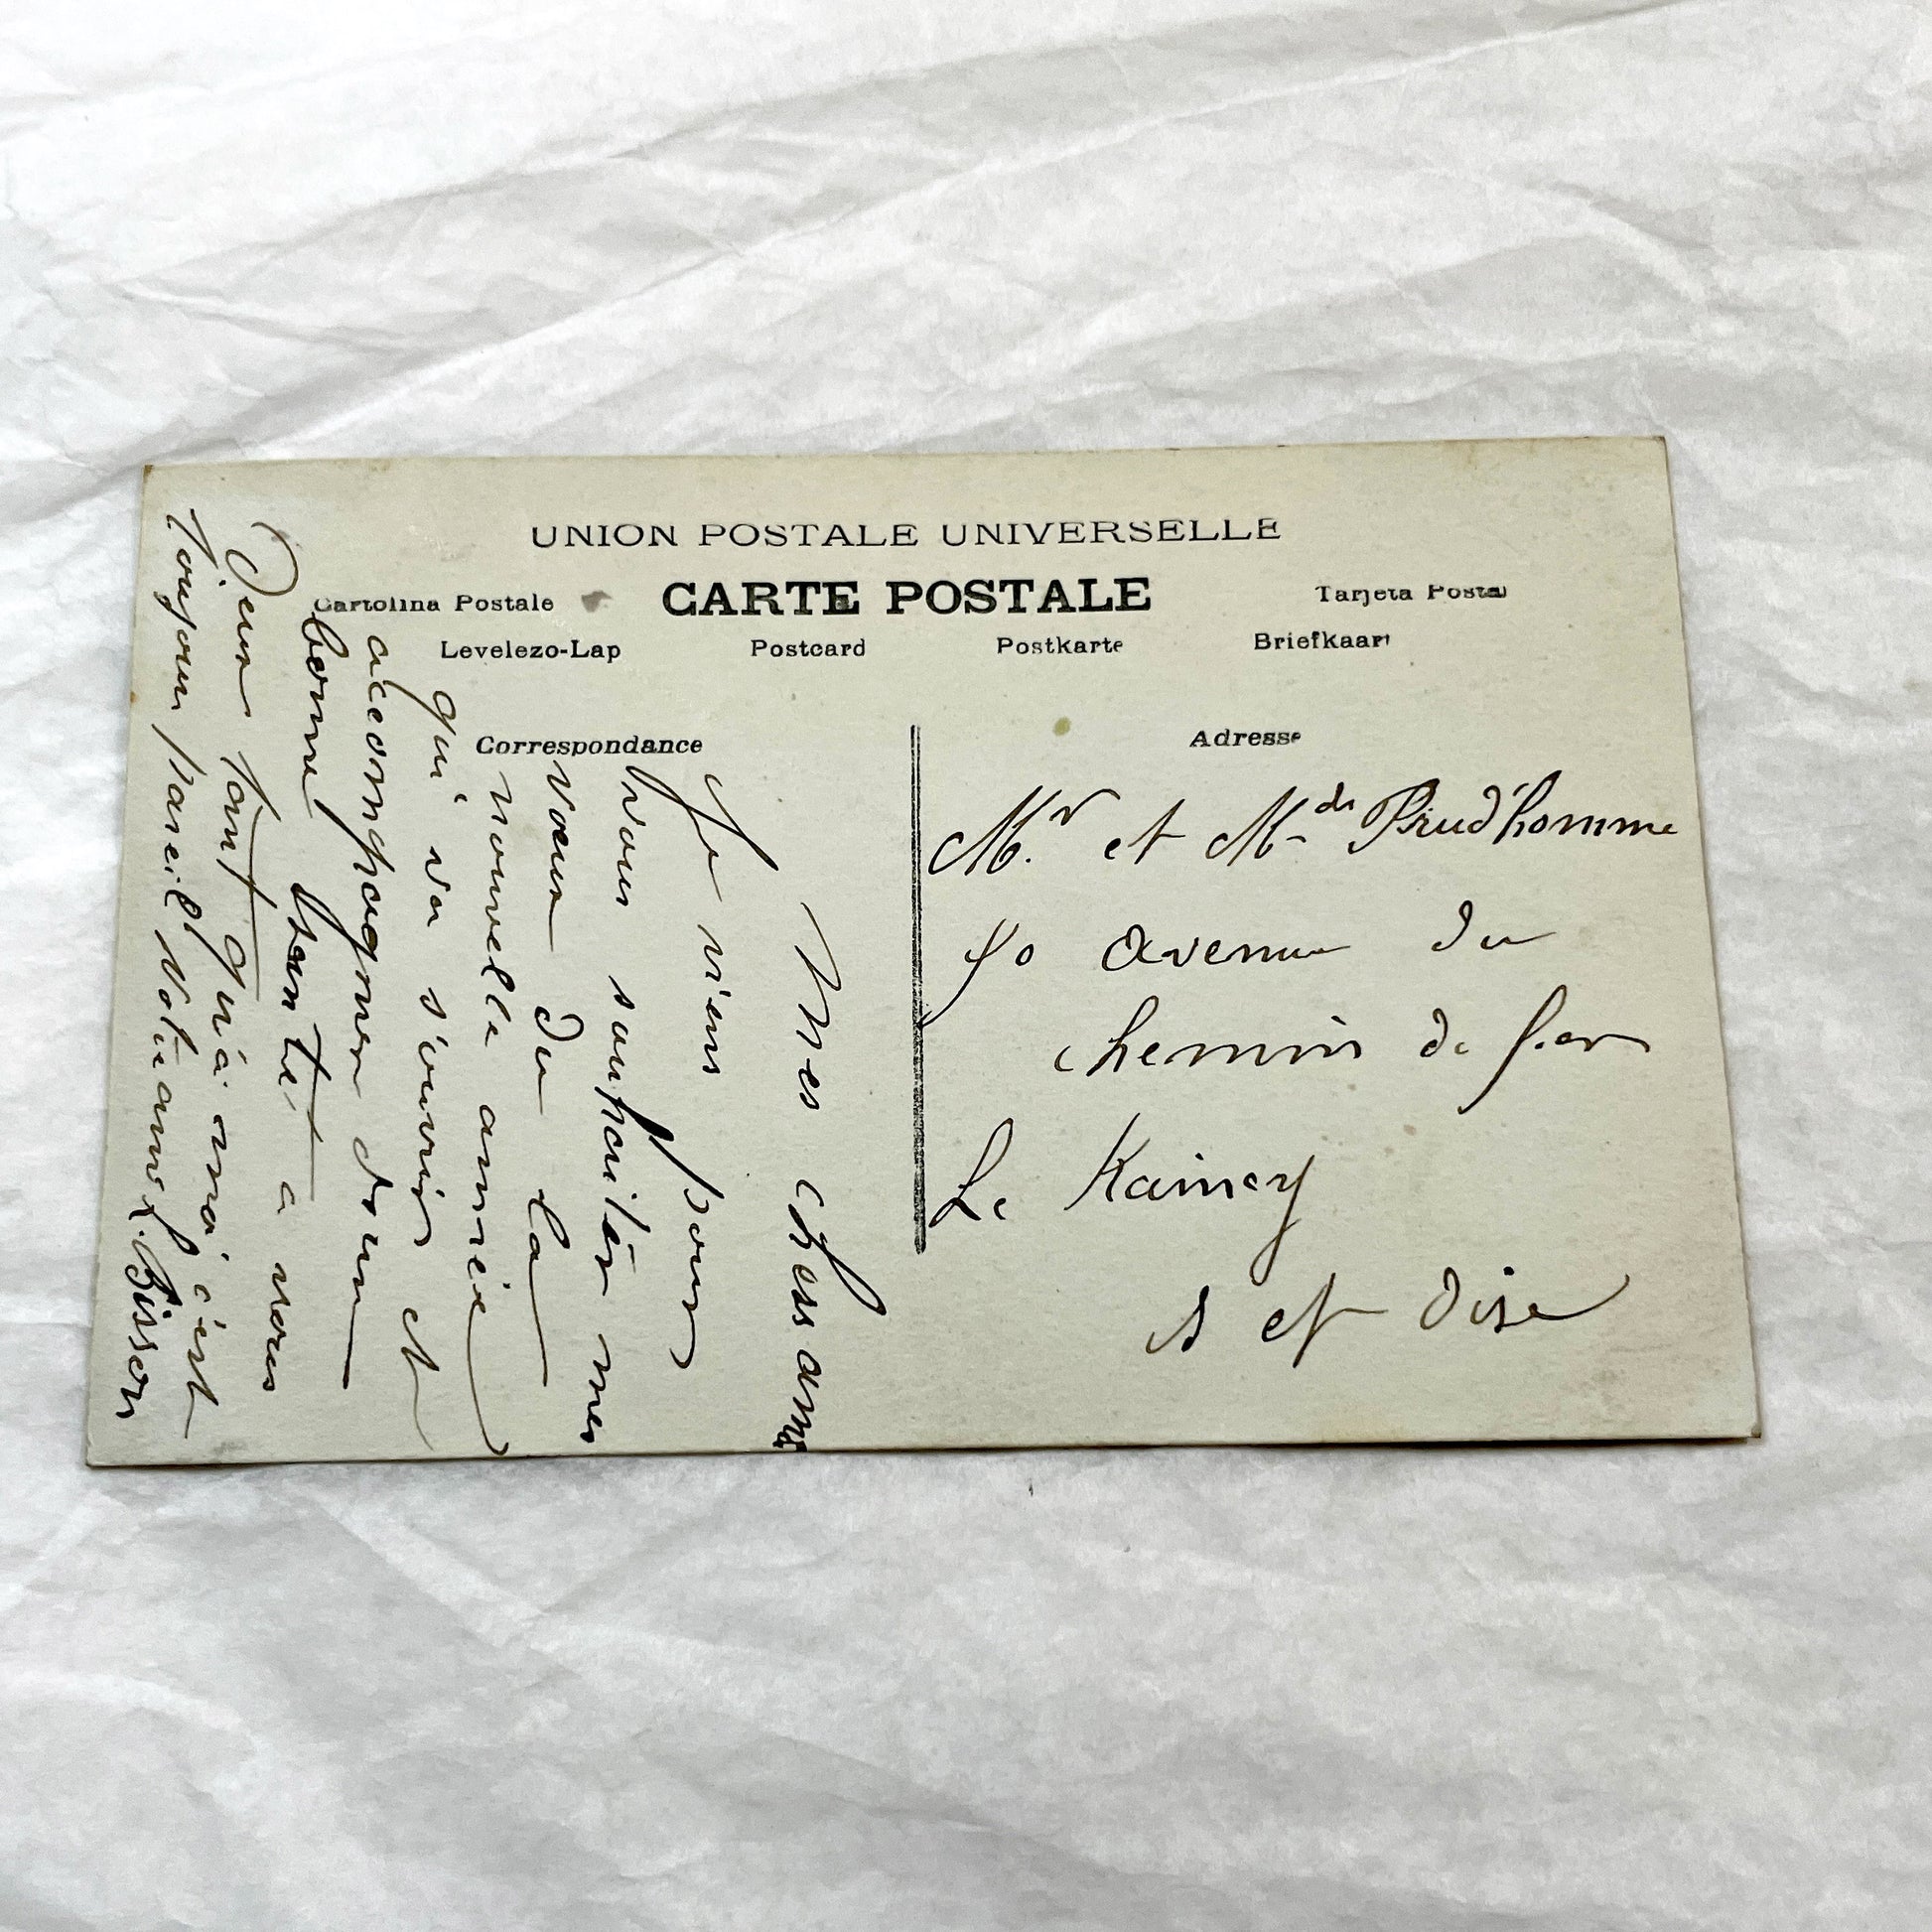 UNION POSTALE UNIVERSELLE
Cartolina Postale CARTE POSTALE Tarjeta Postal
Levelezo-Lap Postcard Postkarte Briefkaart
Correspondance
Mes chers amis
Je viens pour
vous souhaiter mes
vœux du la
nouvelle année
qui va s'ouvrir et
accompagner d'une
bonne santé, a vous
deux tant qu'a moi c'est
toujour pareil Votre ami E. Bisson
Adresse
Mr. et Mde Prud'homme
50 avenue du
chemin de fer
Le Rainey
S et Oise